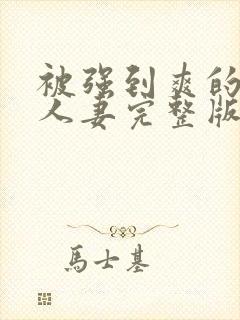 被强到爽的
人妻完整版
馬士基